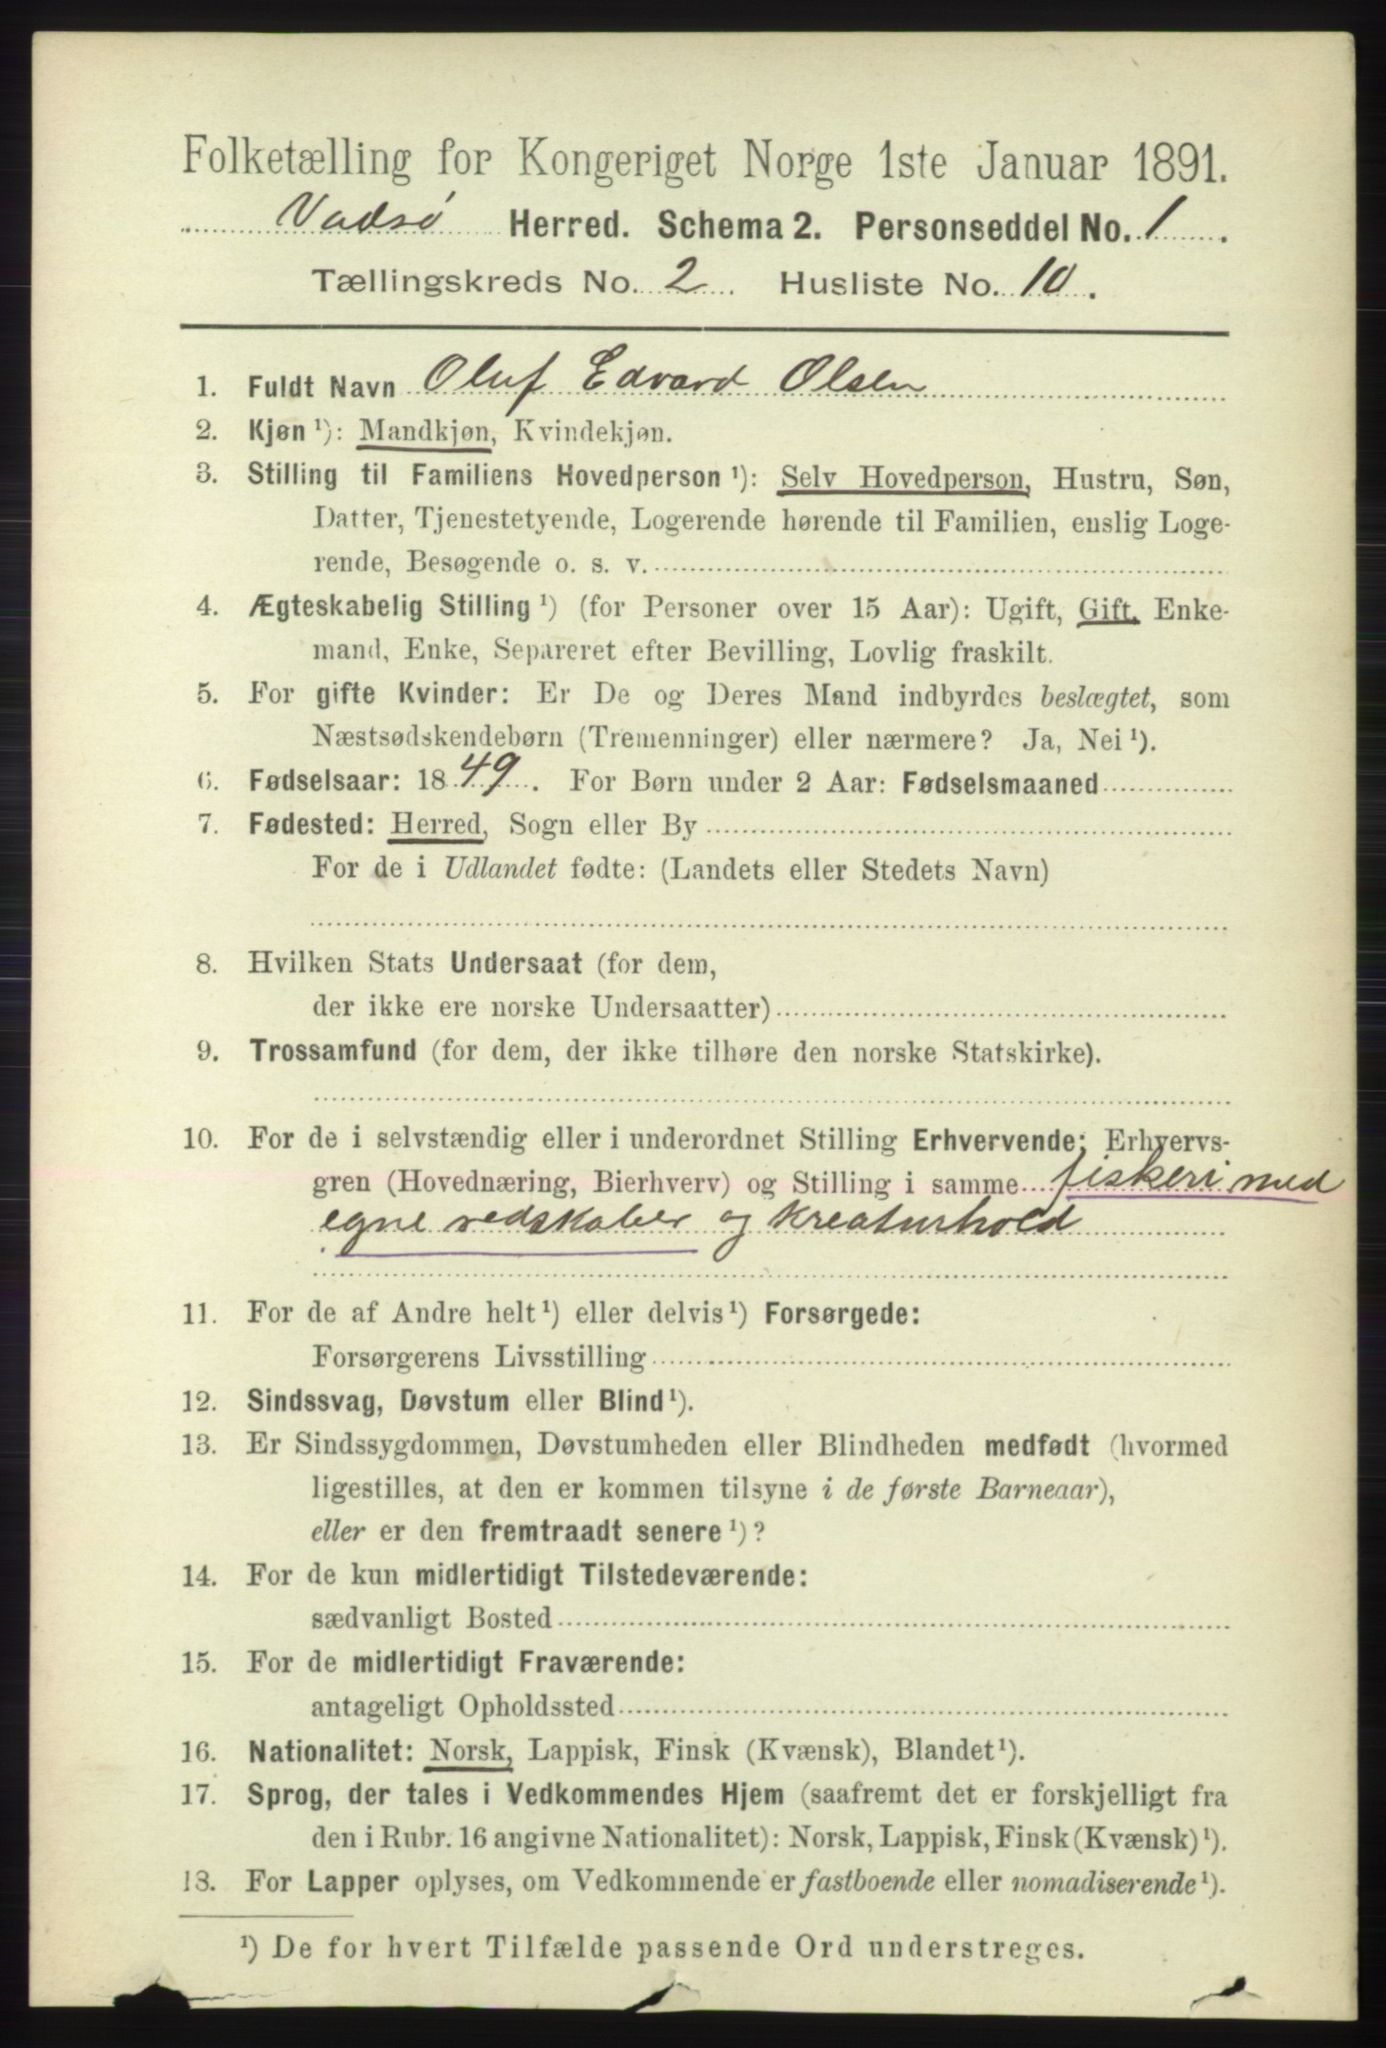 Folketælling for Kongeriget Norge 1ste Januar 1891.
Vadsø Herred. Schema 2. Personseddel No. 1.
Tællingskreds No. 2. Husliste No. 10.
1. Fuldt Navn Oluf Edvard Olsen
2. Kjøn¹): Mandkjøn, Kvindekjøn.
3. Stilling til Familiens Hovedperson¹): Selv Hovedperson, Hustru, Søn,
Datter, Tjenestetyende, Logerende hørende til Familien, enslig Loge-
rende, Besøgende o. s. v.
4. Ægteskabelig Stilling¹) (for Personer over 15 Aar): Ugift, Gift, Enke-
mand, Enke, Separeret efter Bevilling, Lovlig fraskilt.
5. For gifte Kvinder: Er De og Deres Mand indbyrdes beslægtet, som
Næstsødskendebørn (Tremenninger) eller nærmere? Ja, Nei¹).
6. Fødselsaar: 1849. For Børn under 2 Aar: Fødselsmaaned
7. Fødested: Herred, Sogn eller By
For de i Udlandet fødte: (Landets eller Stedets Navn)
8. Hvilken Stats Undersaat (for dem,
der ikke ere norske Undersaatter)
9. Trossamfund (for dem, der ikke tilhøre den norske Statskirke).
10. For de i selvstændig eller i underordnet Stilling Erhvervende: Erhvervs-
gren (Hovednæring, Bierhverv) og Stilling i samme fiskeri med
egne redskaber og kreaturhold
11. For de af Andre helt¹) eller delvis¹) Forsørgede:
Forsørgerens Livsstilling
12. Sindssvag, Døvstum eller Blind¹).
13. Er Sindssygdommen, Døvstumheden eller Blindheden medfødt (hvormed
ligestilles, at den er kommen tilsyne i de første Barneaar),
eller er den fremtraadt senere¹)?
14. For de kun midlertidigt Tilstedeværende:
sædvanligt Bosted
15. For de midlertidigt Fraværende:
antageligt Opholdssted
16. Nationalitet: Norsk, Lappisk, Finsk (Kvænsk), Blandet¹).
17. Sprog, der tales i Vedkommendes Hjem (saafremt det er forskjelligt fra
den i Rubr. 16 angivne Nationalitet): Norsk, Lappisk, Finsk (Kvænsk)¹).
18. For Lapper oplyses, om Vedkommende er fastboende eller nomadiserende¹).
¹) De for hvert Tilfælde passende Ord understreges.